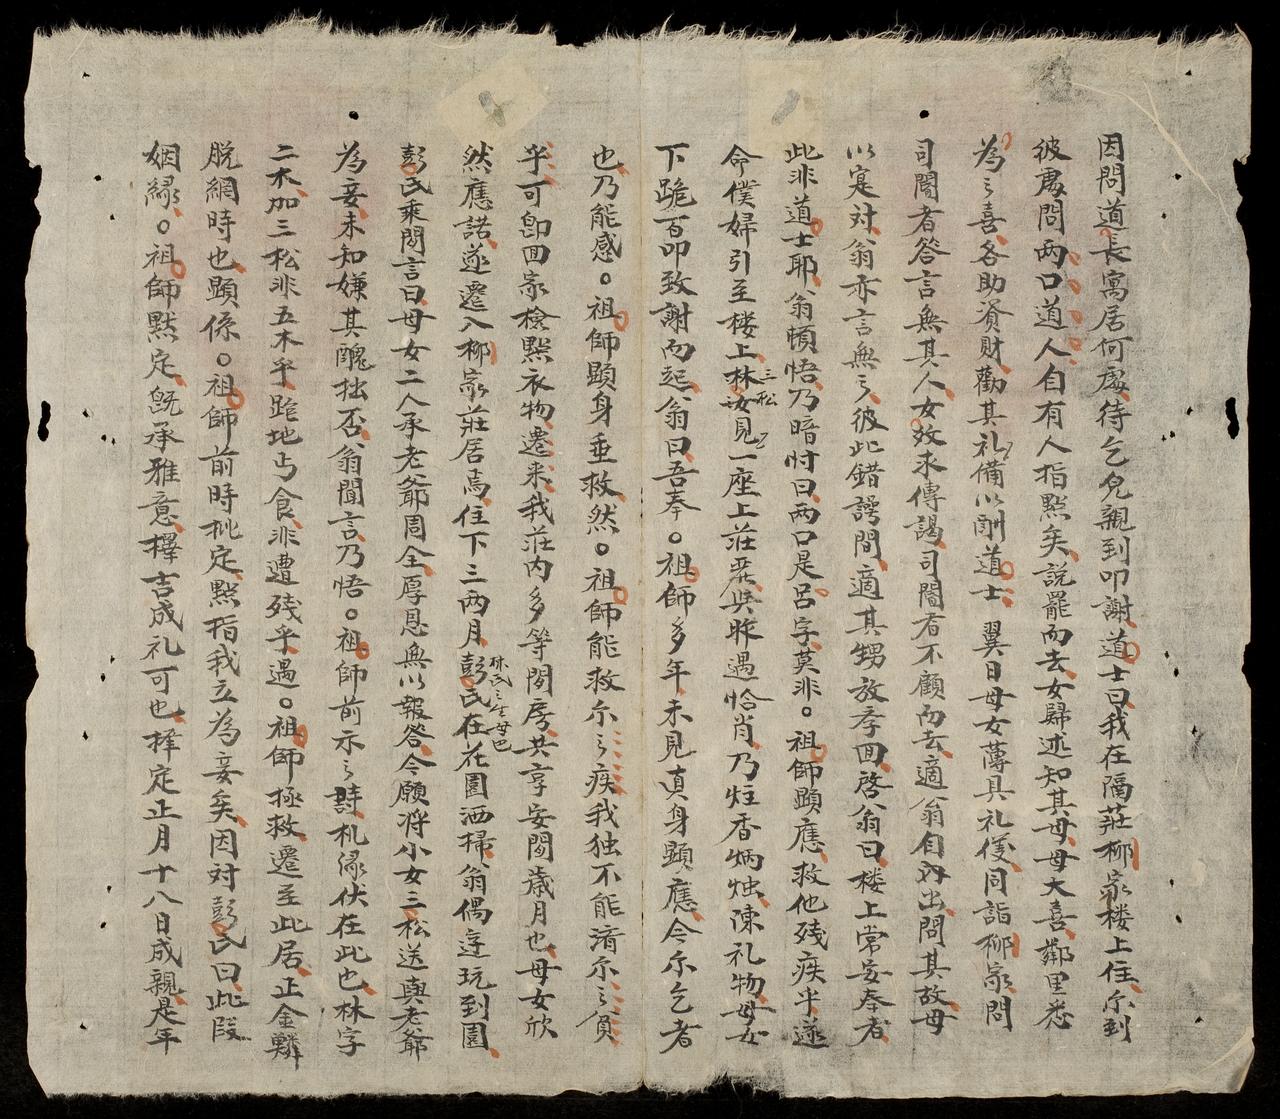 因問道長寓居何處待乞兒親到叩謝道士曰我在隔莊柳家楼上住尔到
彼處問两口道人自有人指點矣說罷而去女歸述知其母母大喜鄰里悉
為之喜各助資財勸其礼備以酬道士翼日母女薄具礼儀同詣柳家問
司閽者答言無其人女孜求傳謁司閽者不顧而去適翁自內出問其故母
以寔対翁亦言無之彼此錯諤間適其甥放季回啓翁曰楼上常安奉者
此非道士耶翁頓悟乃暗忖曰两口是呂字莫非○祖師顕應救他残疾乎遂
命僕婦引至楼上林女三松見一座上莊嚴與昨遇恰肖乃炷香炳烛陳礼物母女
下跪百叩致謝而起翁曰吾奉○祖師多年未見真身顕應今尔乞者
也乃能感○祖師顕身垂救然○祖師能救尔之疾我独不能済尔之貧
乎可即回家檢點衣物遷来我莊内多等閒房共享安閒歲月也母女欣
然應諾遂遷入柳家莊居焉住下三两月彭氏林氏之生母也在花園洒掃翁偶遊玩到園
彭氏乘間言曰母女二人承老爺周全厚恩無以報答今願将小女三松送與老爺
為妾未知嫌其醜拙否翁聞言乃悟○祖師前示之詩札緣伏在此也林字
二木加三松非五木乎跪地丐食非遭残乎遇○祖師拯救遷至此居正金鱗
脫網時也顕係○祖師前時批定點指我立為妾矣因対彭氏曰此段
姻緣○祖師黙定既承雅意擇吉成礼可也擇定正月十八日成親是年